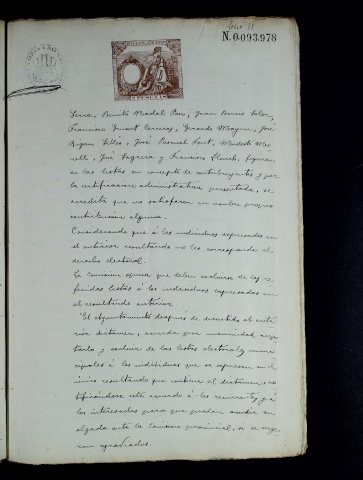 folio 11
N.0.093.978
Serra, Benito Madal Pau, Juan Barris Soler,
Francisco Carreras, Gerardo José
José Pascual Font, Modesto
José Sagrera y Francisco Llauch, figuran
en las listas en concepto de contribuyentes y por
la certificacion administrativa presentada, se
acredita que no satisfacen en nombre propio
contribucion alguna.
Considerando que á los individuos expresados en
el anterior resultando no les corresponde el
derecho electoral.
La Comision opina que deben excluirse de las re-
feridas listas á los individuos expresados en
el resultando anterior.
El Ayuntamiento después de discutido el ante-
rior dictámen, acuerda por unanimidad acep-
tarlo y excluir de las listas electorales muni-
cipales á los individuos que se expresan en el
único resultando que contiene el dictámen, no-
tificándose este acuerdo á los recurrentes y á
los interesados para que puedan acudir en
alzada ante la Comision provincial, si se cre-
yeran agraviados.